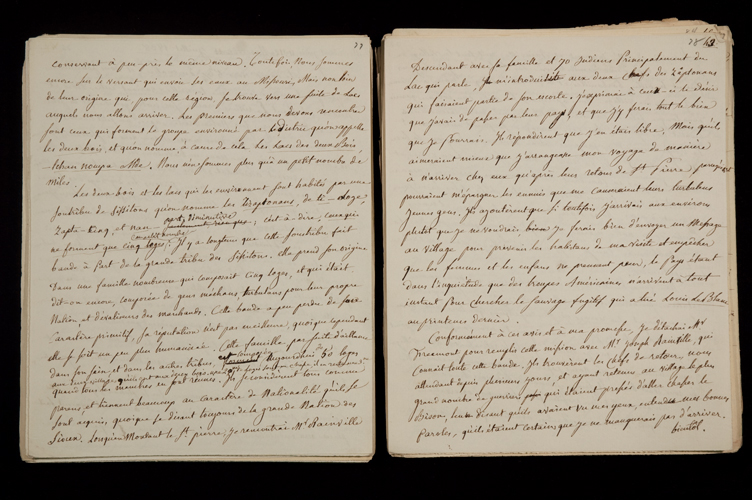 39
conservant à peu près le même niveau. Toutefois nous sommes
encore sur le versant qui envoie ses eaux au Missouri, Mais non loin
de leur origine qui pour cette région, se trouve vers une suite de Lacs
auxquels nous allons arriver. Les premiers que nous devons rencontrer
sont ceux qui forment le groupe environné par
les deux bois, et qu'on nomme, à cause de cela les Lacs des deux Bois
. Nous n'en sommes plus qu'à un petit nombre de
miles.
Les deux bois et les lacs qui les environnent sont habités par une
soustribu de Sissitons qu'on nomme les
et non
c'est à dire, ceux qui
ne forment que cinq loges. Il y a longtems que cette soustribu fait
bande à Part de la grande tribu des Sissitons. elle prend son origine
Dans une famille nombreuse qui composait Cinq loges, et qui était
dit-on encore, composée de gens méchans, turbulens pour leur propre
Nation, et dévaliseurs des marchands. Cette bande a peu perdu de son
Caractère primitif, sa réputation n'est pas meilleure, quoique cependant
elle se soit un peu plus humanisée. Cette famille par suite d'alliances
dans son sein, et dans les autres tribus, est composée aujourd'hui 50 loges
quand tous les membres en sont réunis. Ils se considèrent tous comme
parens, et tiennent beaucoup au Caractère de Nationalité qu'ils se
sont acquis, quoique se disant toujours de la grande Nation des
Sioux. Lorsqu'en Montant le St pierre, je rencontrai Mr Rainville
43
Descendant avec sa famille et 70 Indiens Principalement du
Lac qui parle, Il m'introduisit aux deux Chefs des
qui faisaient partie de son escorte. J'exprimai à ceux-ci le désir
que j'avais de passer par leur pays, et que j'y ferais tout le bien
que je Pourrais. Ils répondirent que j'en étais libre, Mais qu'ils
aimeraient mieux que j'arrangeasse mon voyage de manière
à n'arriver chez eux qu'après leur retour de St Pierre
pourraient m'épargner les ennuis que me causeraient leurs turbulens
Jeunes gens. Ils ajoutèrent que si toutefois j'arrivais aux environs
plutôt que je ne voudrais, je ferais bien d'envoyer un Message
au village pour prévenir les habitans de ma visite et empêcher
que les femmes et les enfans ne prennent peur, le Pays étant
dans l'inquiétude que des troupes Américaines n'arrivent à tout
instant pour chercher le sauvage fugitif qui a tué Louis Le Blanc
au printems dernier.
Conformément à ces avis et à ma promesse, j'ai détaché Mr
Freemont pour remplir cette mission avec Mr Joseph Rainville, qui
Connaît toute cette bande. Ils trouvèrent les chefs de retour, nous
attendant depuis plusieurs jours, et ayant retenu au village le plus
grand nombre de guerriers qui étaient pressés d'aller chasser le
Bison, leur dirent qu'ils avaient vu mes yeux, entendu mes bonnes
Paroles, qu'ils étaient certains que je ne manquerais pas d'arriver
bientôt.